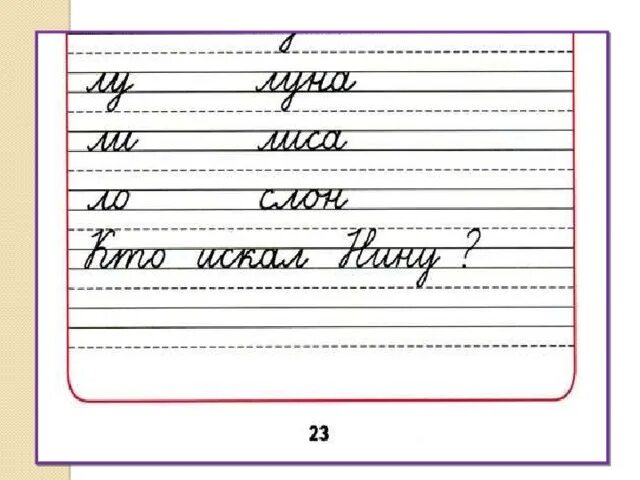 лу луна
ли лиса
ло слон
Кто искал Нину ?
23